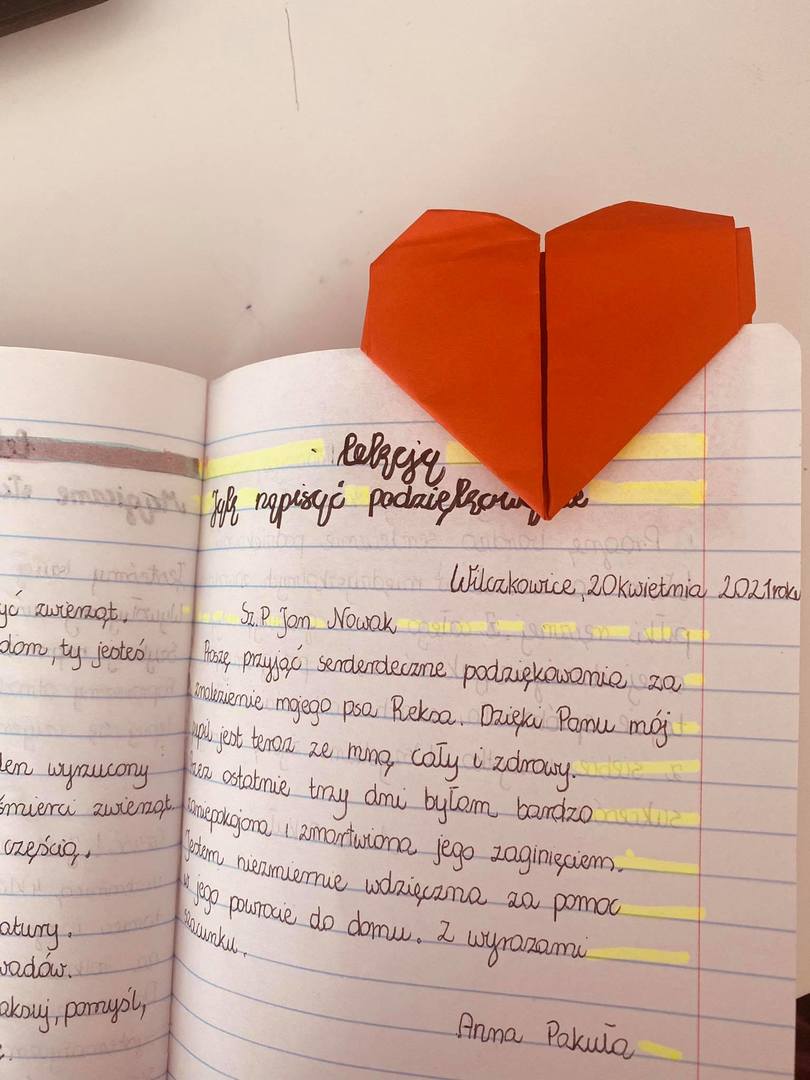 yć zwierząt.
dom, ty jesteś
len wyrzucony
śmierci zwierząt.
częścią.
atury.
wadów.
aksuj, pomyśl,
Lekcja
Jak napisać podziękowanie
Wilczkowice, 20 kwietnia 2021 roku
Sz.P. Jan Nowak
Proszę przyjąć serderdeczne podziękowania za
znalezienie mojego psa Reksa. Dzięki Panu mój
pupil jest teraz ze mną cały i zdrowy.
Przez ostatnie trzy dni byłam bardzo
zaniepokojona i zmartwiona jego zaginięciem.
Jestem niezmiernie wdzięczna za pomoc
w jego powrocie do domu. Z wyrazami
szacunku.
Anna Pakuła